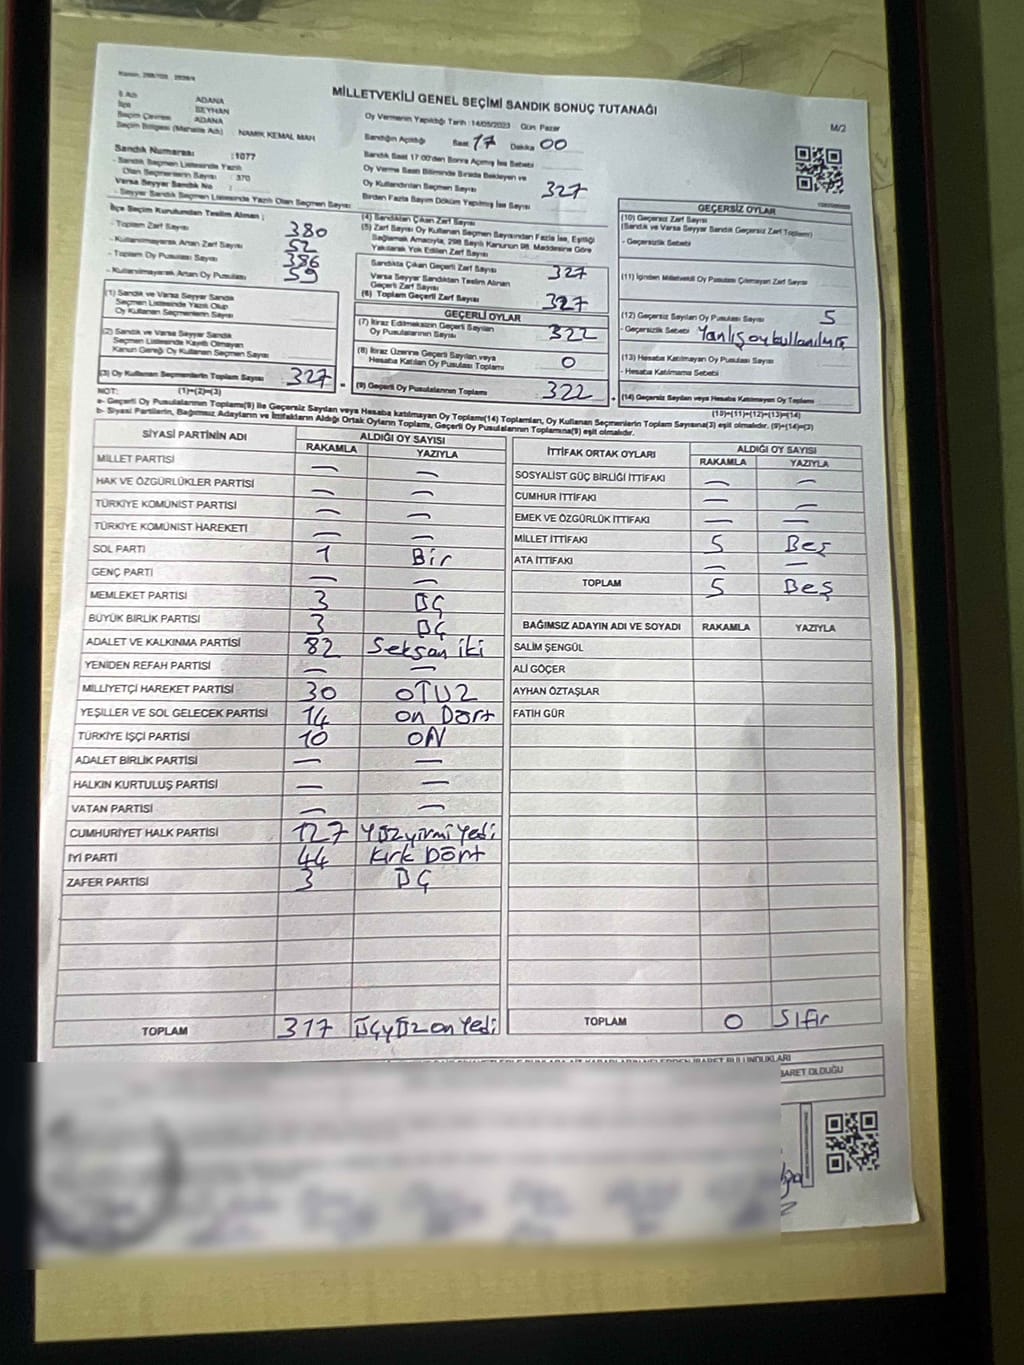 MİLLETVEKİLİ GENEL SEÇİMİ SANDIK SONUÇ TUTANAĞI
M/2
İl Adı : ADANA
İlçe : SEYHAN
Seçim Çevresi : ADANA
Seçim Bölgesi (Mahalle Adı) : NAMIK KEMAL MAH
Oy Vermenin Yapıldığı Tarih : 14/05/2023 Gün: Pazar
Sandığın Açıldığı Saat 17 Dakika 00
Sandık Saat 17:00'den Sonra Açılmış İse Sebebi
Oy Verme Saati Bitiminde Sırada Bekleyen ve
Oy Kullandırılan Seçmen Sayısı 327
Birden Fazla Sayım Döküm Yapılmış İse Sayısı
Sandık Numarası : 1077
- Sandık Seçmen Listesinde Yazılı
Olan Seçmenlerin Sayısı : 370
Varsa Seyyar Sandık No :
- Seyyar Sandık Seçmen Listesinde Yazılı Olan Seçmen Sayısı
İlçe Seçim Kurulundan Teslim Alınan ;
- Toplam Zarf Sayısı 380
- Kullanılmayarak Artan Zarf Sayısı 52
- Toplam Oy Pusulası Sayısı 386
- Kullanılmayarak Artan Oy Pusulası 59
(1) Sandık ve Varsa Seyyar Sandık
Seçmen Listesinde Yazılı Olup
Oy Kullanan Seçmenlerin Sayısı
(2) Sandık ve Varsa Seyyar Sandık
Seçmen Listesinde Kayıtlı Olmayan
Kanun Gereği Oy Kullanan Seçmen Sayısı
(3) Oy Kullanan Seçmenlerin Toplam Sayısı 327
(4) Sandıktan Çıkan Zarf Sayısı
(5) Zarf Sayısı Oy Kullanan Seçmen Sayısından Fazla İse, Eşitliği
Sağlamak Amacıyla, 298 Sayılı Kanunun 98. Maddesine Göre
Yakılarak Yok Edilen Zarf Sayısı
Sandıkta Çıkan Geçerli Zarf Sayısı 327
Varsa Seyyar Sandıktan Teslim Alınan
Geçerli Zarf Sayısı
(6) Toplam Geçerli Zarf Sayısı 327
GEÇERLİ OYLAR
(7) İtiraz Edilmeksizin Geçerli Sayılan
Oy Pusulalarının Sayısı 322
(8) İtiraz Üzerine Geçerli Sayılan veya
Hesaba Katılan Oy Pusulası Toplamı 0
(9) Geçerli Oy Pusulalarının Toplamı 322
GEÇERSİZ OYLAR
(10) Geçersiz Zarf Sayısı
(Sandık ve Varsa Seyyar Sandık Geçersiz Zarf Toplamı)
- Geçersizlik Sebebi
(11) İçinden Milletvekili Oy Pusulası Çıkmayan Zarf Sayısı
(12) Geçersiz Sayılan Oy Pusulası Sayısı 5
- Geçersizlik Sebebi Yanlış oy kullanılmış
(13) Hesaba Katılmayan Oy Pusulası Sayısı
- Hesaba Katılmama Sebebi
(14) Geçersiz Sayılan veya Hesaba Katılmayan Oy Toplamı
(10)+(11)+(12)+(13)=(14)
NOT: (1)+(2)=(3)
a- Geçerli Oy Pusulalarının Toplamı(9) ile Geçersiz Sayılan veya Hesaba katılmayan Oy Toplamı(14) Toplamları, Oy Kullanan Seçmenlerin Toplam Sayısına(3) eşit olmalıdır. (9)+(14)=(3)
b- Siyasi Partilerin, Bağımsız Adayların ve İttifakların Aldığı Ortak Oyların Toplamı, Geçerli Oy Pusulalarının Toplamına(9) eşit olmalıdır.
SİYASİ PARTİNİN ADI ALDIĞI OY SAYISI
RAKAMLA YAZIYLA
MİLLET PARTİSİ — —
HAK VE ÖZGÜRLÜKLER PARTİSİ — —
TÜRKİYE KOMÜNİST PARTİSİ — —
TÜRKİYE KOMÜNİST HAREKETİ — —
SOL PARTİ 1 Bir
GENÇ PARTİ — —
MEMLEKET PARTİSİ 3 ÜÇ
BÜYÜK BİRLİK PARTİSİ 3 ÜÇ
ADALET VE KALKINMA PARTİSİ 82 Seksan iki
YENİDEN REFAH PARTİSİ — —
MİLLİYETÇİ HAREKET PARTİSİ 30 OTUZ
YEŞİLLER VE SOL GELECEK PARTİSİ 14 on Dört
TÜRKİYE İŞÇİ PARTİSİ 10 ON
ADALET BİRLİK PARTİSİ — —
HALKIN KURTULUŞ PARTİSİ — —
VATAN PARTİSİ — —
CUMHURİYET HALK PARTİSİ 127 Yüzyirmi Yedi
İYİ PARTİ 44 Kırk Dört
ZAFER PARTİSİ 3 ÜÇ
TOPLAM 317 Üçyüz on Yedi
İTTİFAK ORTAK OYLARI ALDIĞI OY SAYISI
RAKAMLA YAZIYLA
SOSYALİST GÜÇ BİRLİĞİ İTTİFAKI — —
CUMHUR İTTİFAKI — —
EMEK VE ÖZGÜRLÜK İTTİFAKI — —
MİLLET İTTİFAKI 5 Beş
ATA İTTİFAKI — —
TOPLAM 5 Beş
BAĞIMSIZ ADAYIN ADI VE SOYADI RAKAMLA YAZIYLA
SALİM ŞENGÜL
ALİ GÖÇER
AYHAN ÖZTAŞLAR
FATİH GÜR
TOPLAM 0 Sıfır
BARET OLDUĞU